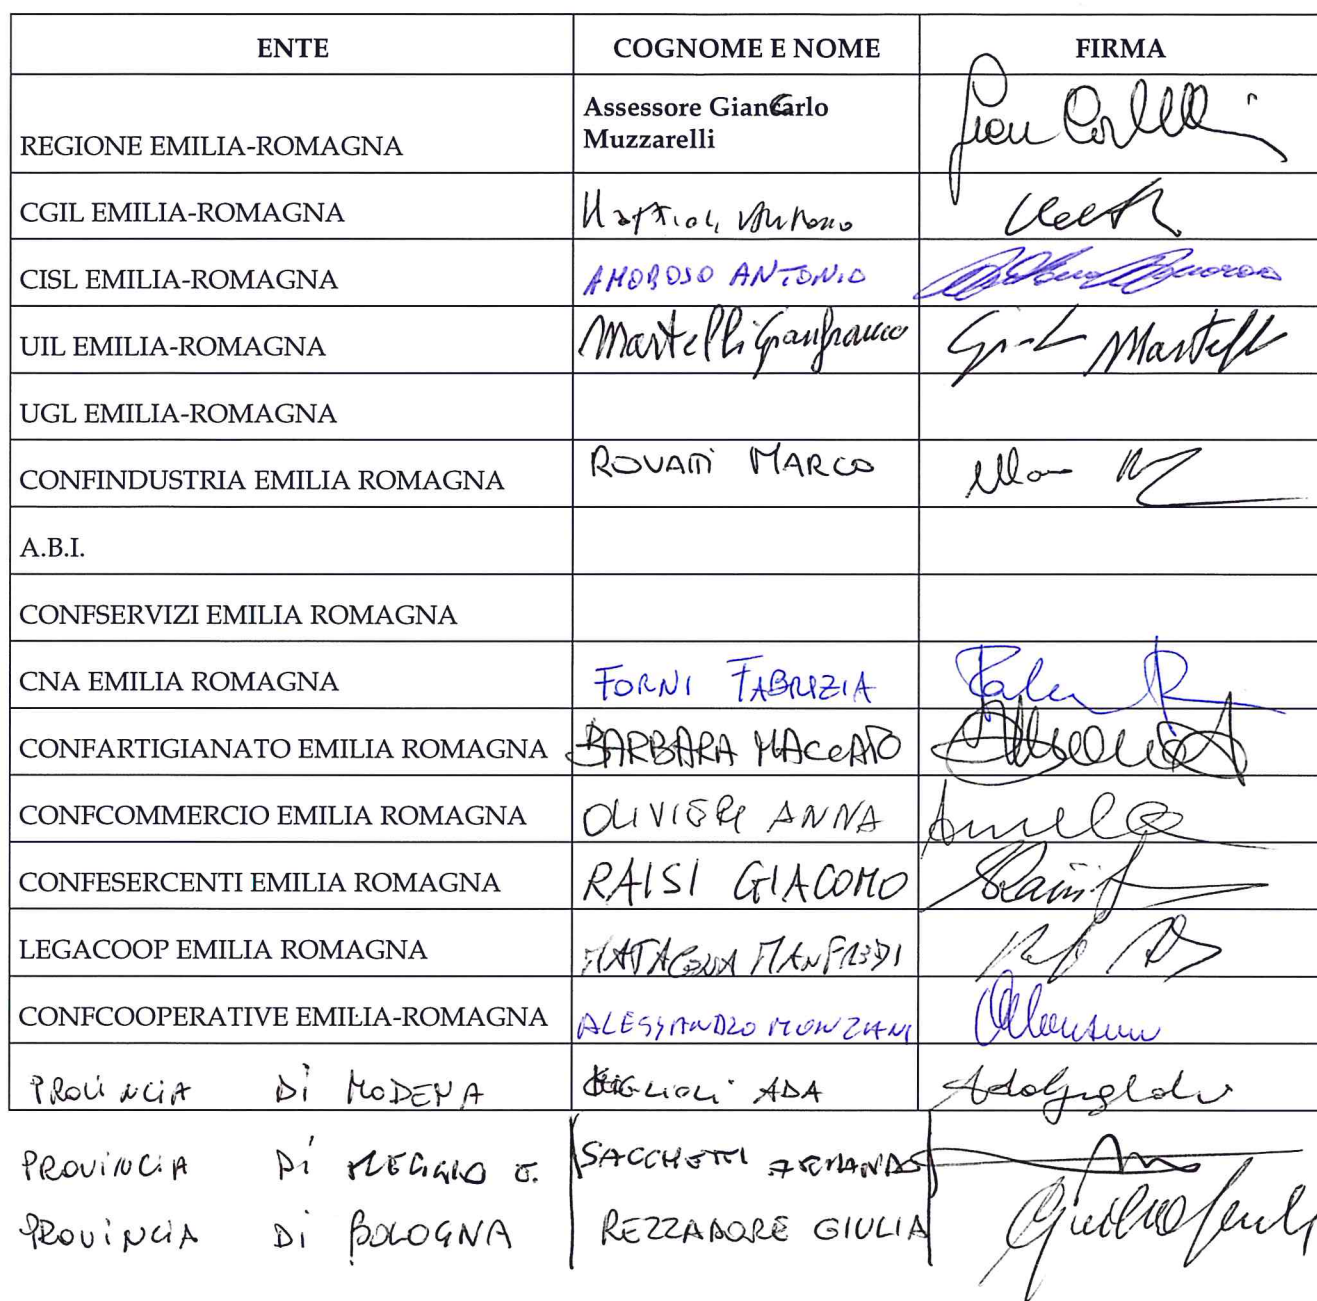 ENTE COGNOME E NOME FIRMA
REGIONE EMILIA-ROMAGNA Assessore Giancarlo
Muzzarelli
CGIL EMILIA-ROMAGNA Mattioli Antonio
CISL EMILIA-ROMAGNA AMOROSO ANTONIO
UIL EMILIA-ROMAGNA Martelli Gianfranco
UGL EMILIA-ROMAGNA
CONFINDUSTRIA EMILIA ROMAGNA ROVATTI MARCO
A.B.I.
CONFSERVIZI EMILIA ROMAGNA
CNA EMILIA ROMAGNA FORNI FABRIZIA
CONFARTIGIANATO EMILIA ROMAGNA BARBARA MACCATO
CONFCOMMERCIO EMILIA ROMAGNA OLIVIERI ANNA
CONFESERCENTI EMILIA ROMAGNA RAISI GIACOMO
LEGACOOP EMILIA ROMAGNA MATACENA MANFREDI
CONFCOOPERATIVE EMILIA-ROMAGNA ALESSANDRO MONZIANI
PROVINCIA DI MODENA ADA
PROVINCIA DI REGGIO E. SACCHETTI
PROVINCIA DI BOLOGNA REZZADORE GIULIA